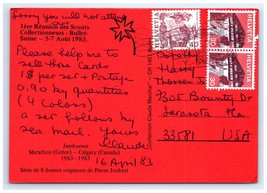 Sorry you will not attend
1ère Réunion des Scouts
Collectionneurs : Bullet-
Suisse - 5-7 Août 1983.
Please help me to
sell those cards
1$ per set + Postage
0.90 by quantities
(4 colors)
a set follows by
sea mail. Yours
Claude
16 April 83
Jamboree
Marathon (Grèce) - Calgary (Canada)
1963 - 1983
Série de 8 dessins originaux de Pierre Joubert
Collection Claude Marchal
HELVETIA
HELVETIA
HELVETIA
Dorothy
Bounty Dr
Sarasota Fla.
33581 USA